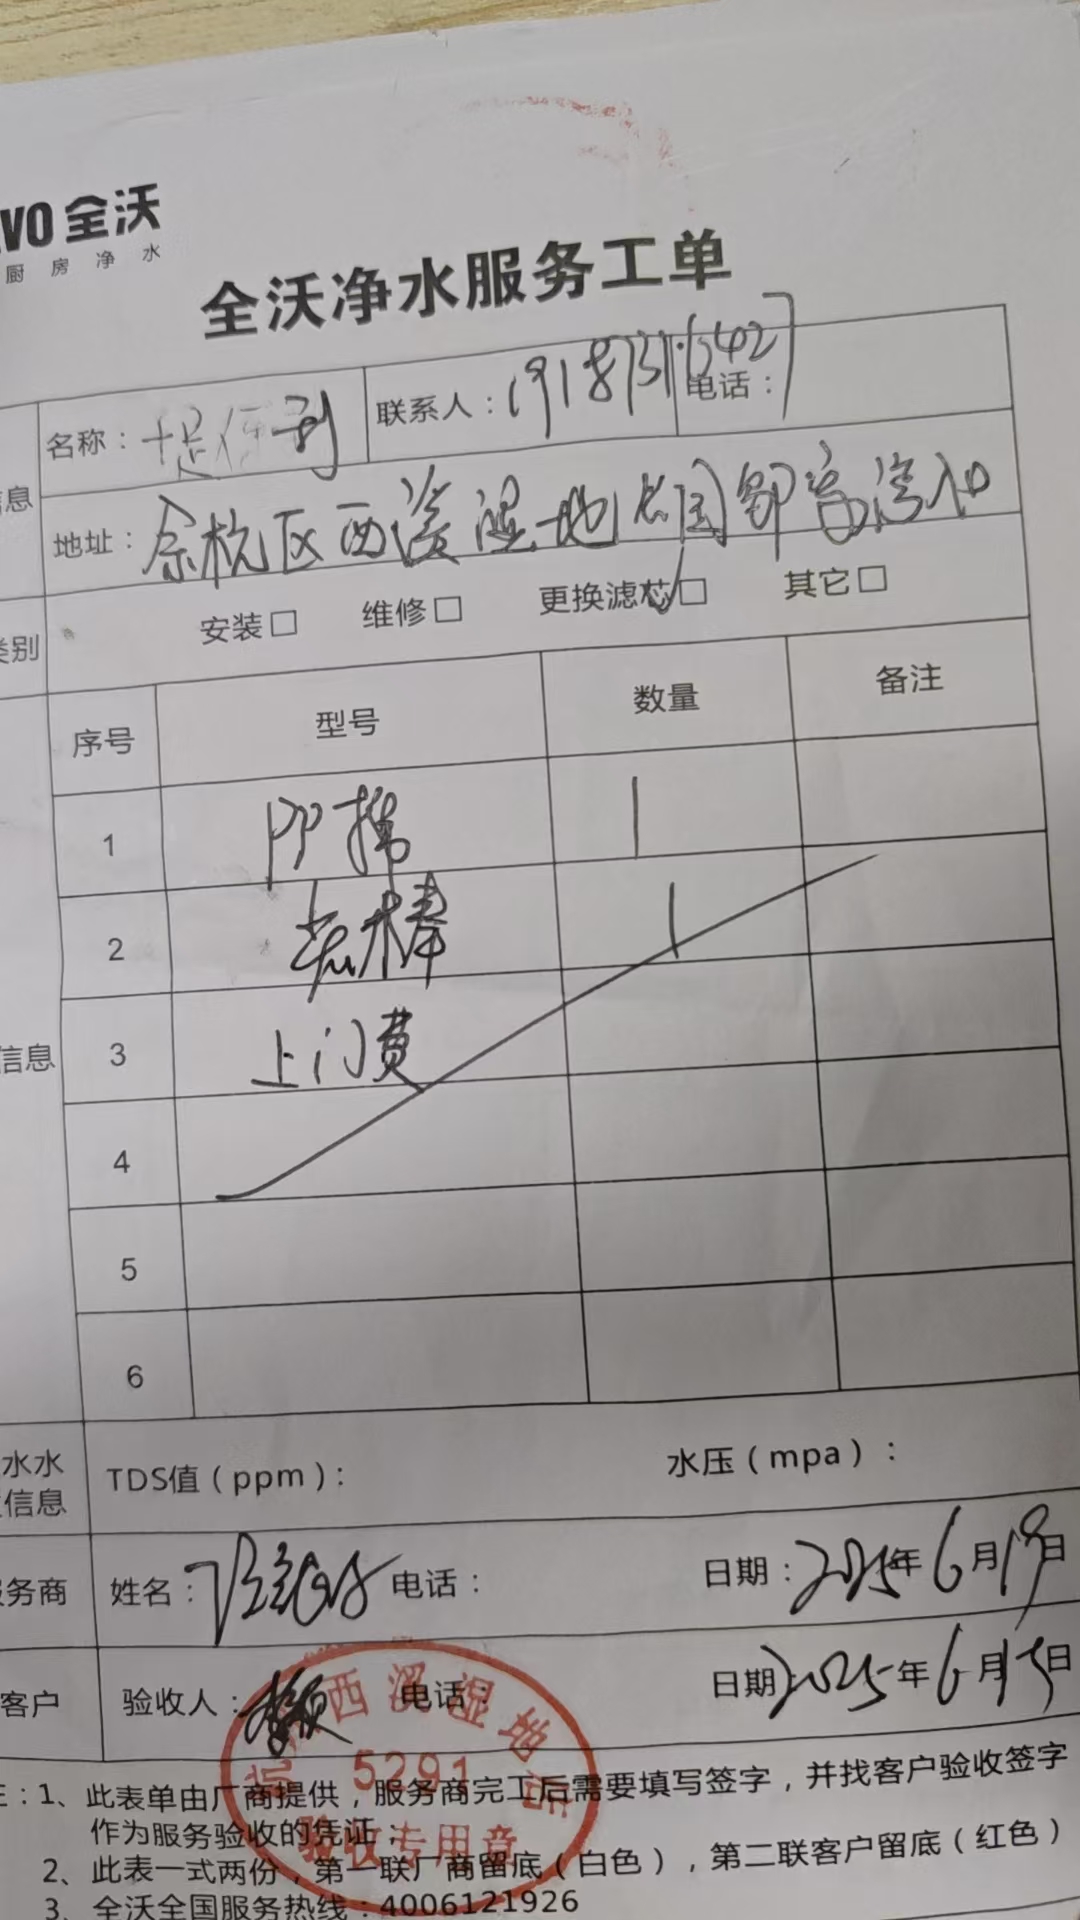 VO 全沃
厨房净水
全沃净水服务工单
息 名称： 联系人：19187316427 电话：
地址：余杭区西溪湿地 国 邻 湾
类别 安装□ 维修□ 更换滤芯□ 其它□
序号 型号 数量 备注
1 PP棉 1
2 炭棒 1
信息 3 上门费
4
5
6
水水 TDS值（ppm）： 水压（mpa）：
信息
务商 姓名： 电话： 日期：2025年6月19日
客户 验收人： 电话： 日期：2025年6月19日
西溪湿地店
5291
验收专用章
注：1、此表单由厂商提供，服务商完工后需要填写签字，并找客户验收签字
作为服务验收的凭证；
2、此表一式两份，第一联厂商留底（白色），第二联客户留底（红色）
3、全沃全国服务热线：4006121926